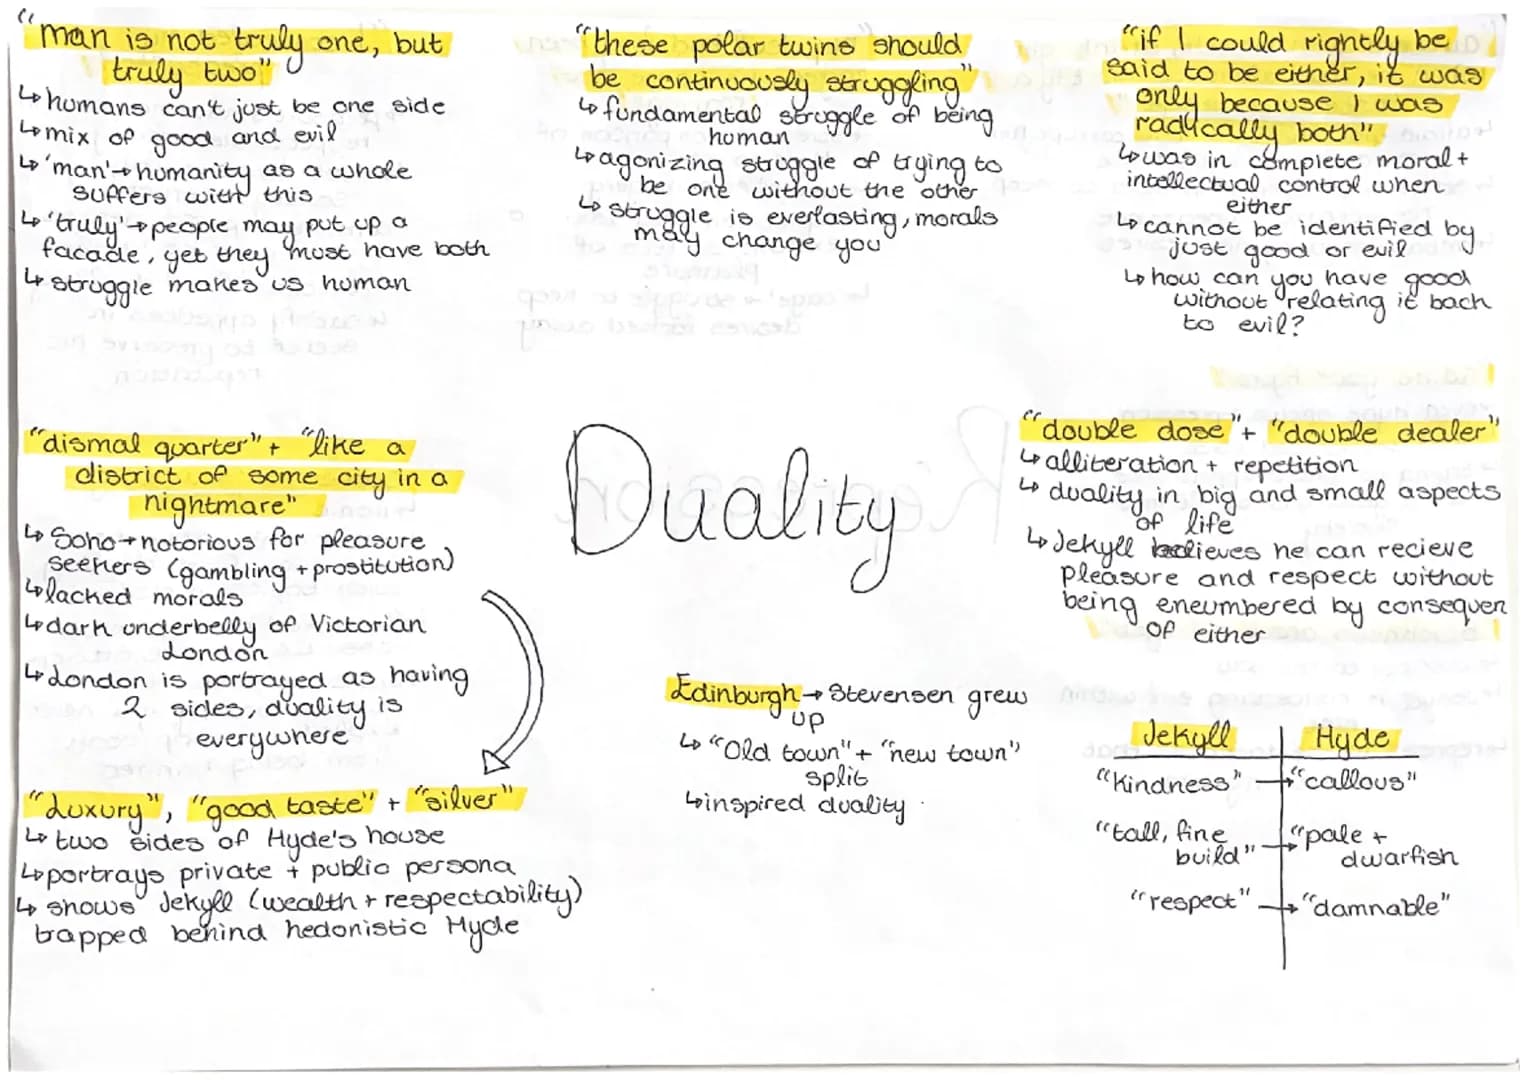 "man is not truly one, but
truly two"
↳humans can't just be one side
↳mix of good and evil
↳'man'→humanity as a whole
suffers with this
↳'truly'→people may put up a
facade, yet they must have both
↳struggle makes us human
"these polar twins should
be continuously struggling"
↳fundamental struggle of being
human
↳agonizing struggle of trying to
be one without the other
↳struggle is everlasting, morals
may change you
"if I could rightly be
said to be either, it was
only because I was
radically both"
↳was in complete moral +
intellectual control when
either
↳cannot be identified by
just good or evil
↳how can you have good
without relating it back
to evil?
"dismal quarter" + "like a
district of some city in a
nightmare"
↳Soho→notorious for pleasure
seekers (gambling + prostitution)
↳lacked morals
↳dark underbelly of Victorian
London
↳London is portrayed as having
2 sides, duality is
everywhere
Duality
"double dose" + "double dealer"
↳alliteration + repetition
↳duality in big and small aspects
of life
↳Jekyll believes he can recieve
pleasure and respect without
being eneumbered by consequen
of either
"Luxury", "good taste" + "silver"
↳two sides of Hyde's house
↳portrays private + public persona
↳shows Jekyll (wealth + respectability)
trapped behind hedonistic Hyde
Edinburgh→Stevensen grew
up
↳"Old town" + "new town"
split
↳inspired duality
Jekyll Hyde
"Kindness" → "callous"
"tall, fine
build" → "pale +
dwarfish
"respect" → "damnable"